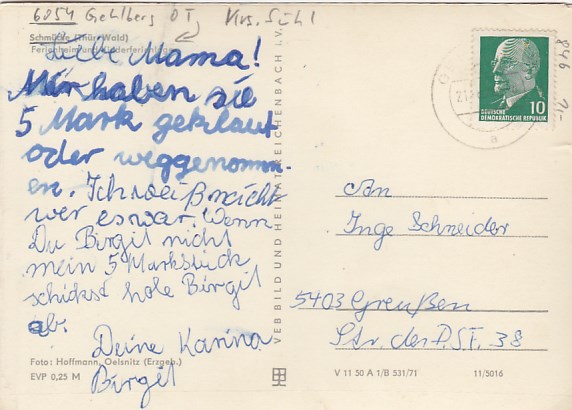 6054 Gehlberg OT Krs. Suhl
Schmücke (Thür. Wald)
Ferienheim und Kinderferienlager
Liebe Mama!
Mir haben sie
5 Mark geklaut
oder weggenomm-
en. Ich weiß nicht
wer es war. Wenn
Du Birgil nicht
mein 5 Markstück
schickst hole Birgil
ab.
Deine Karina
Birgil
Foto: Hoffmann, Oelsnitz (Erzgeb.)
EVP 0,25 M
VEB BILD UND HEIMAT REICHENBACH I. V.
10
DEUTSCHE
DEMOKRATISCHE REPUBLIK
846 2,-
An
Inge Schneider
5403 Greußen
Str. der D.S.F. 38
V 11 50 A 1/B 531/71 11/5016